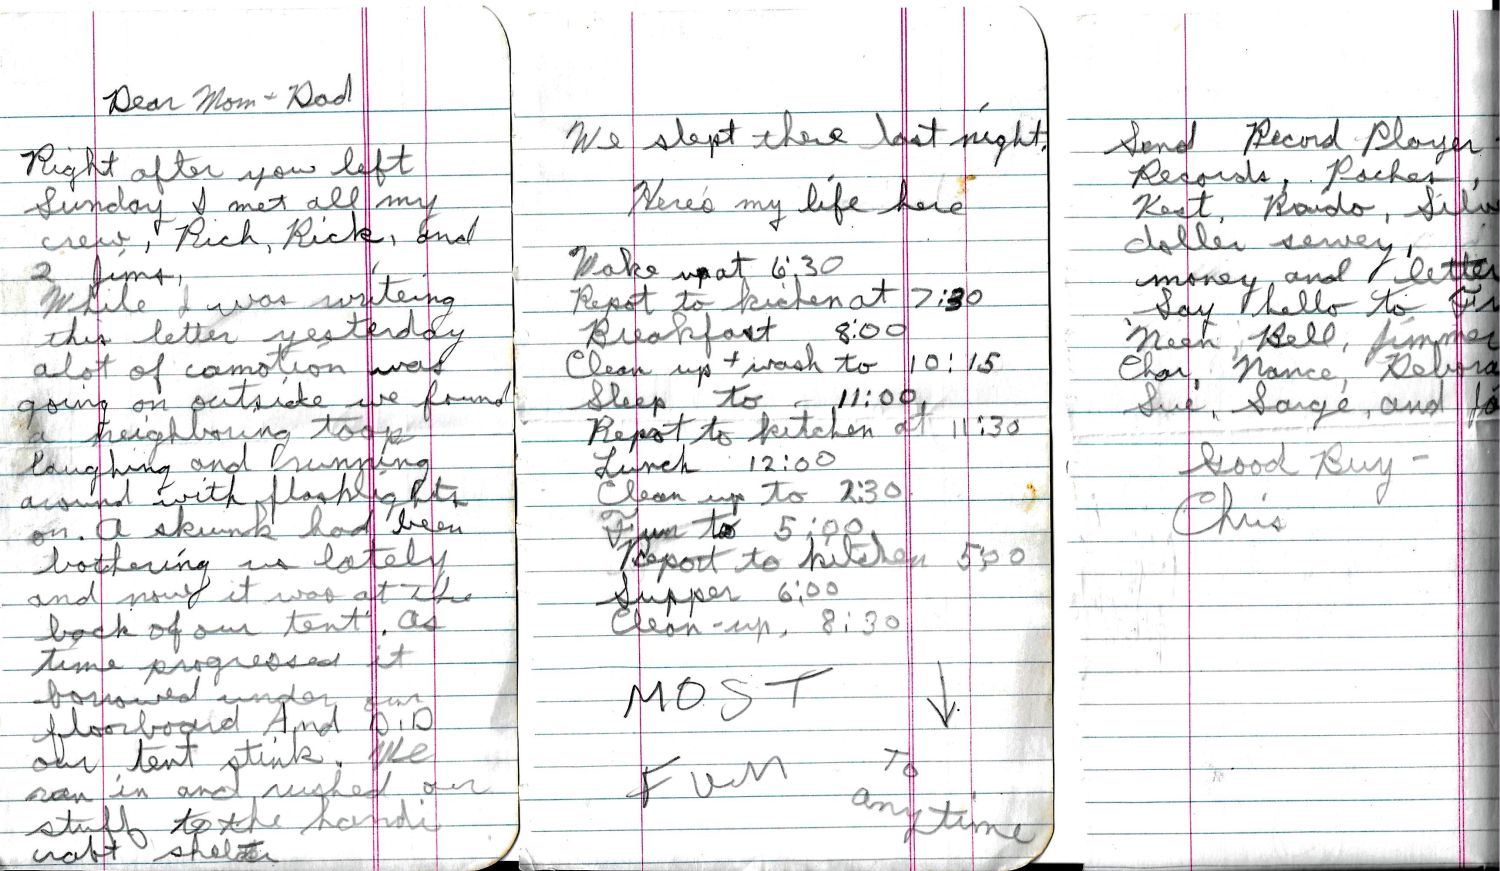 Dear Mom - Dad
Right after you left
Sunday I met all my
crew, Rich, Rick, and
2 jims,
While I was writeing
this letter yesterday
alot of camotion was
going on outside we found
a neighboring toop
laughing and running
around with flashlights
on. A skunk had been
bothering us lately
and now it was at the
back of our tent. As
time progressed it
borrowed under our
floorboard And D.I.D
our tent stink. We
ran in and rushed our
stuff to the handi
craft shelter
We slept there last night.
Here's my life here
Wake up at 6:30
Repot to kichen at 7:30
Breakfast 8:00
Clean up + wash to 10:15
Sleep to 11:00
Repot to kitchen at 11:30
Lunch 12:00
Clean up to 2:30
Fun to 5:00
Report to kitchen 5:00
Supper 6:00
Clean-up, 8:30
MOST ↓
FUN To
anytime
Send Record Player -
Records, Poches,
Kest, Raido, Silv
doller sewey,
money and letter
Say hello to
Neen, Bell, jimmer
Char, Nance, Debora
Sue, Sarge, and
Good Buy -
Chris